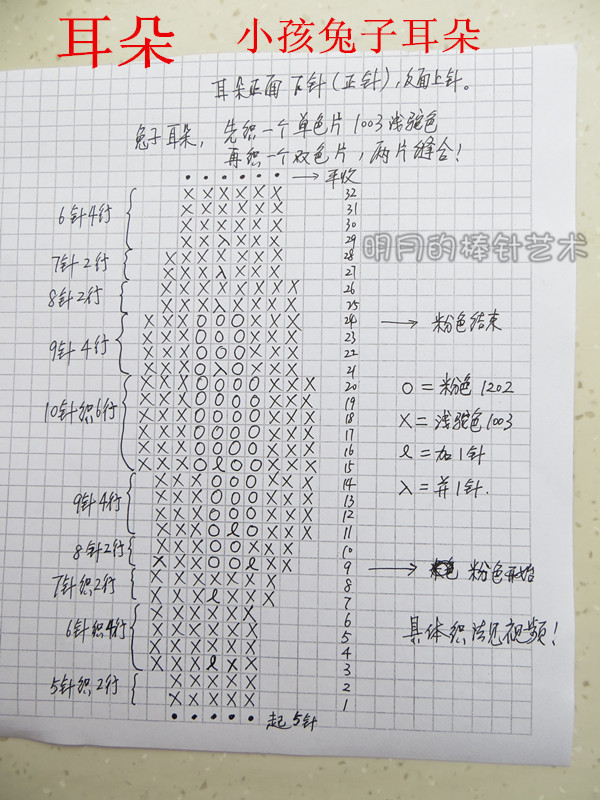 耳朵 小孩兔子耳朵
耳朵正面下针(正针),反面上针。
兔子耳朵, 先织一个单色片1003浅驼色
再织一个双色片,两片缝合!
• • • • • • → 平收
X X X X X X 32
6针4行 X X X X X X 31
X X X X X X 30
X X λ X X X 29
明月的棒针艺术
7针2行 X X X X X X X 28
X X X λ X X X 27
8针2行 X X X X X X X X 26
X X X λ X X X X 25
X X X O O O X X X 24 → 粉色结束
9针4行 X X X O O O X X X 23
X X X O O O X X X 22
X X X O λ O X X X 21
X X X O O O O X X X 20 O=粉色1202
X X X O O O O X X X 19
10针织6行 X X X O O O O X X X 18 X=浅驼色1003
X X X O O O O X X X 17
X X X O O O O X X X 16 ℓ=加1针
X X X O ℓ O O X X X 15
X X X O O O X X X 14 λ=并1针.
9针4行 X X X O O O X X X 13
X X X O O O X X X 12
X X X O ℓ O X X X 11
8针2行 X X X O O X X X 10
X X X O O ℓ X X 9 → 粉色开始
7针织2行 X X X X X X X 8
X X X ℓ X X X 7
X X X X X X 6
6针织4行 X X X X X X 5 具体织法见视频!
X X X X X X 4
X X X ℓ X X 3
5针织2行 X X X X X 2
X X X X X 1
• • • • • 起5针